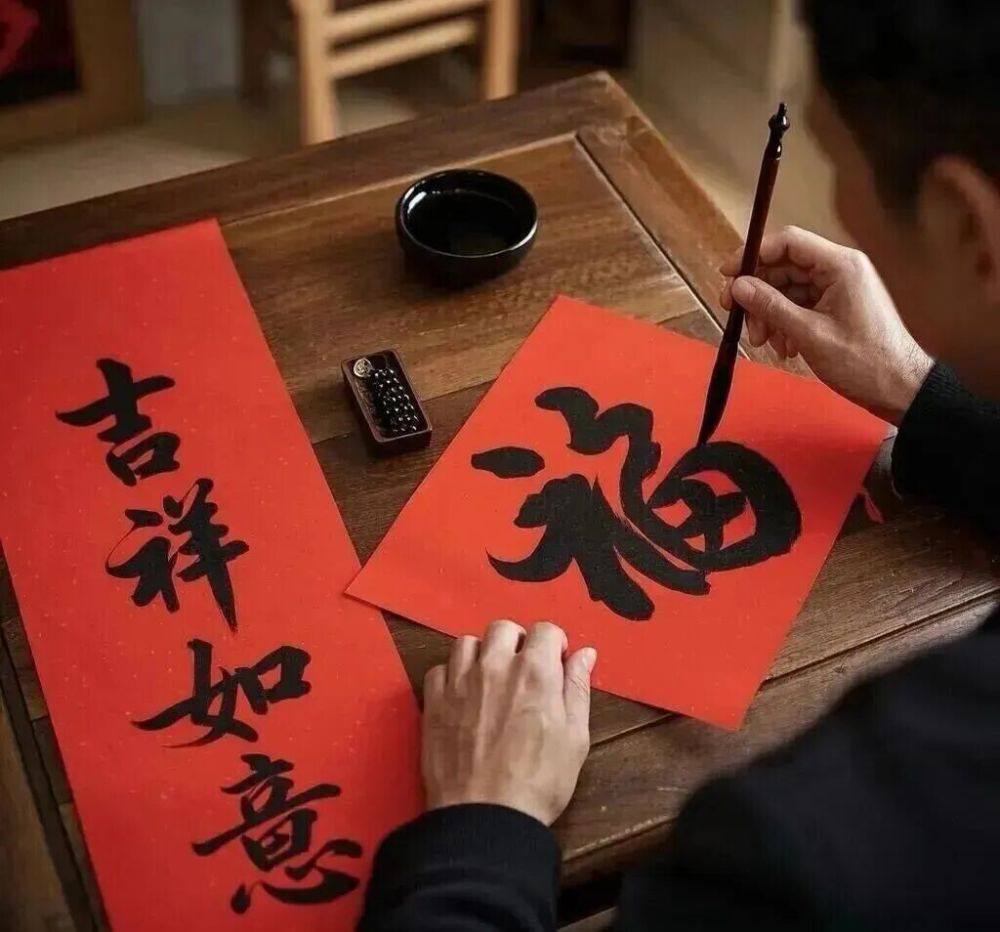 吉祥如意
福